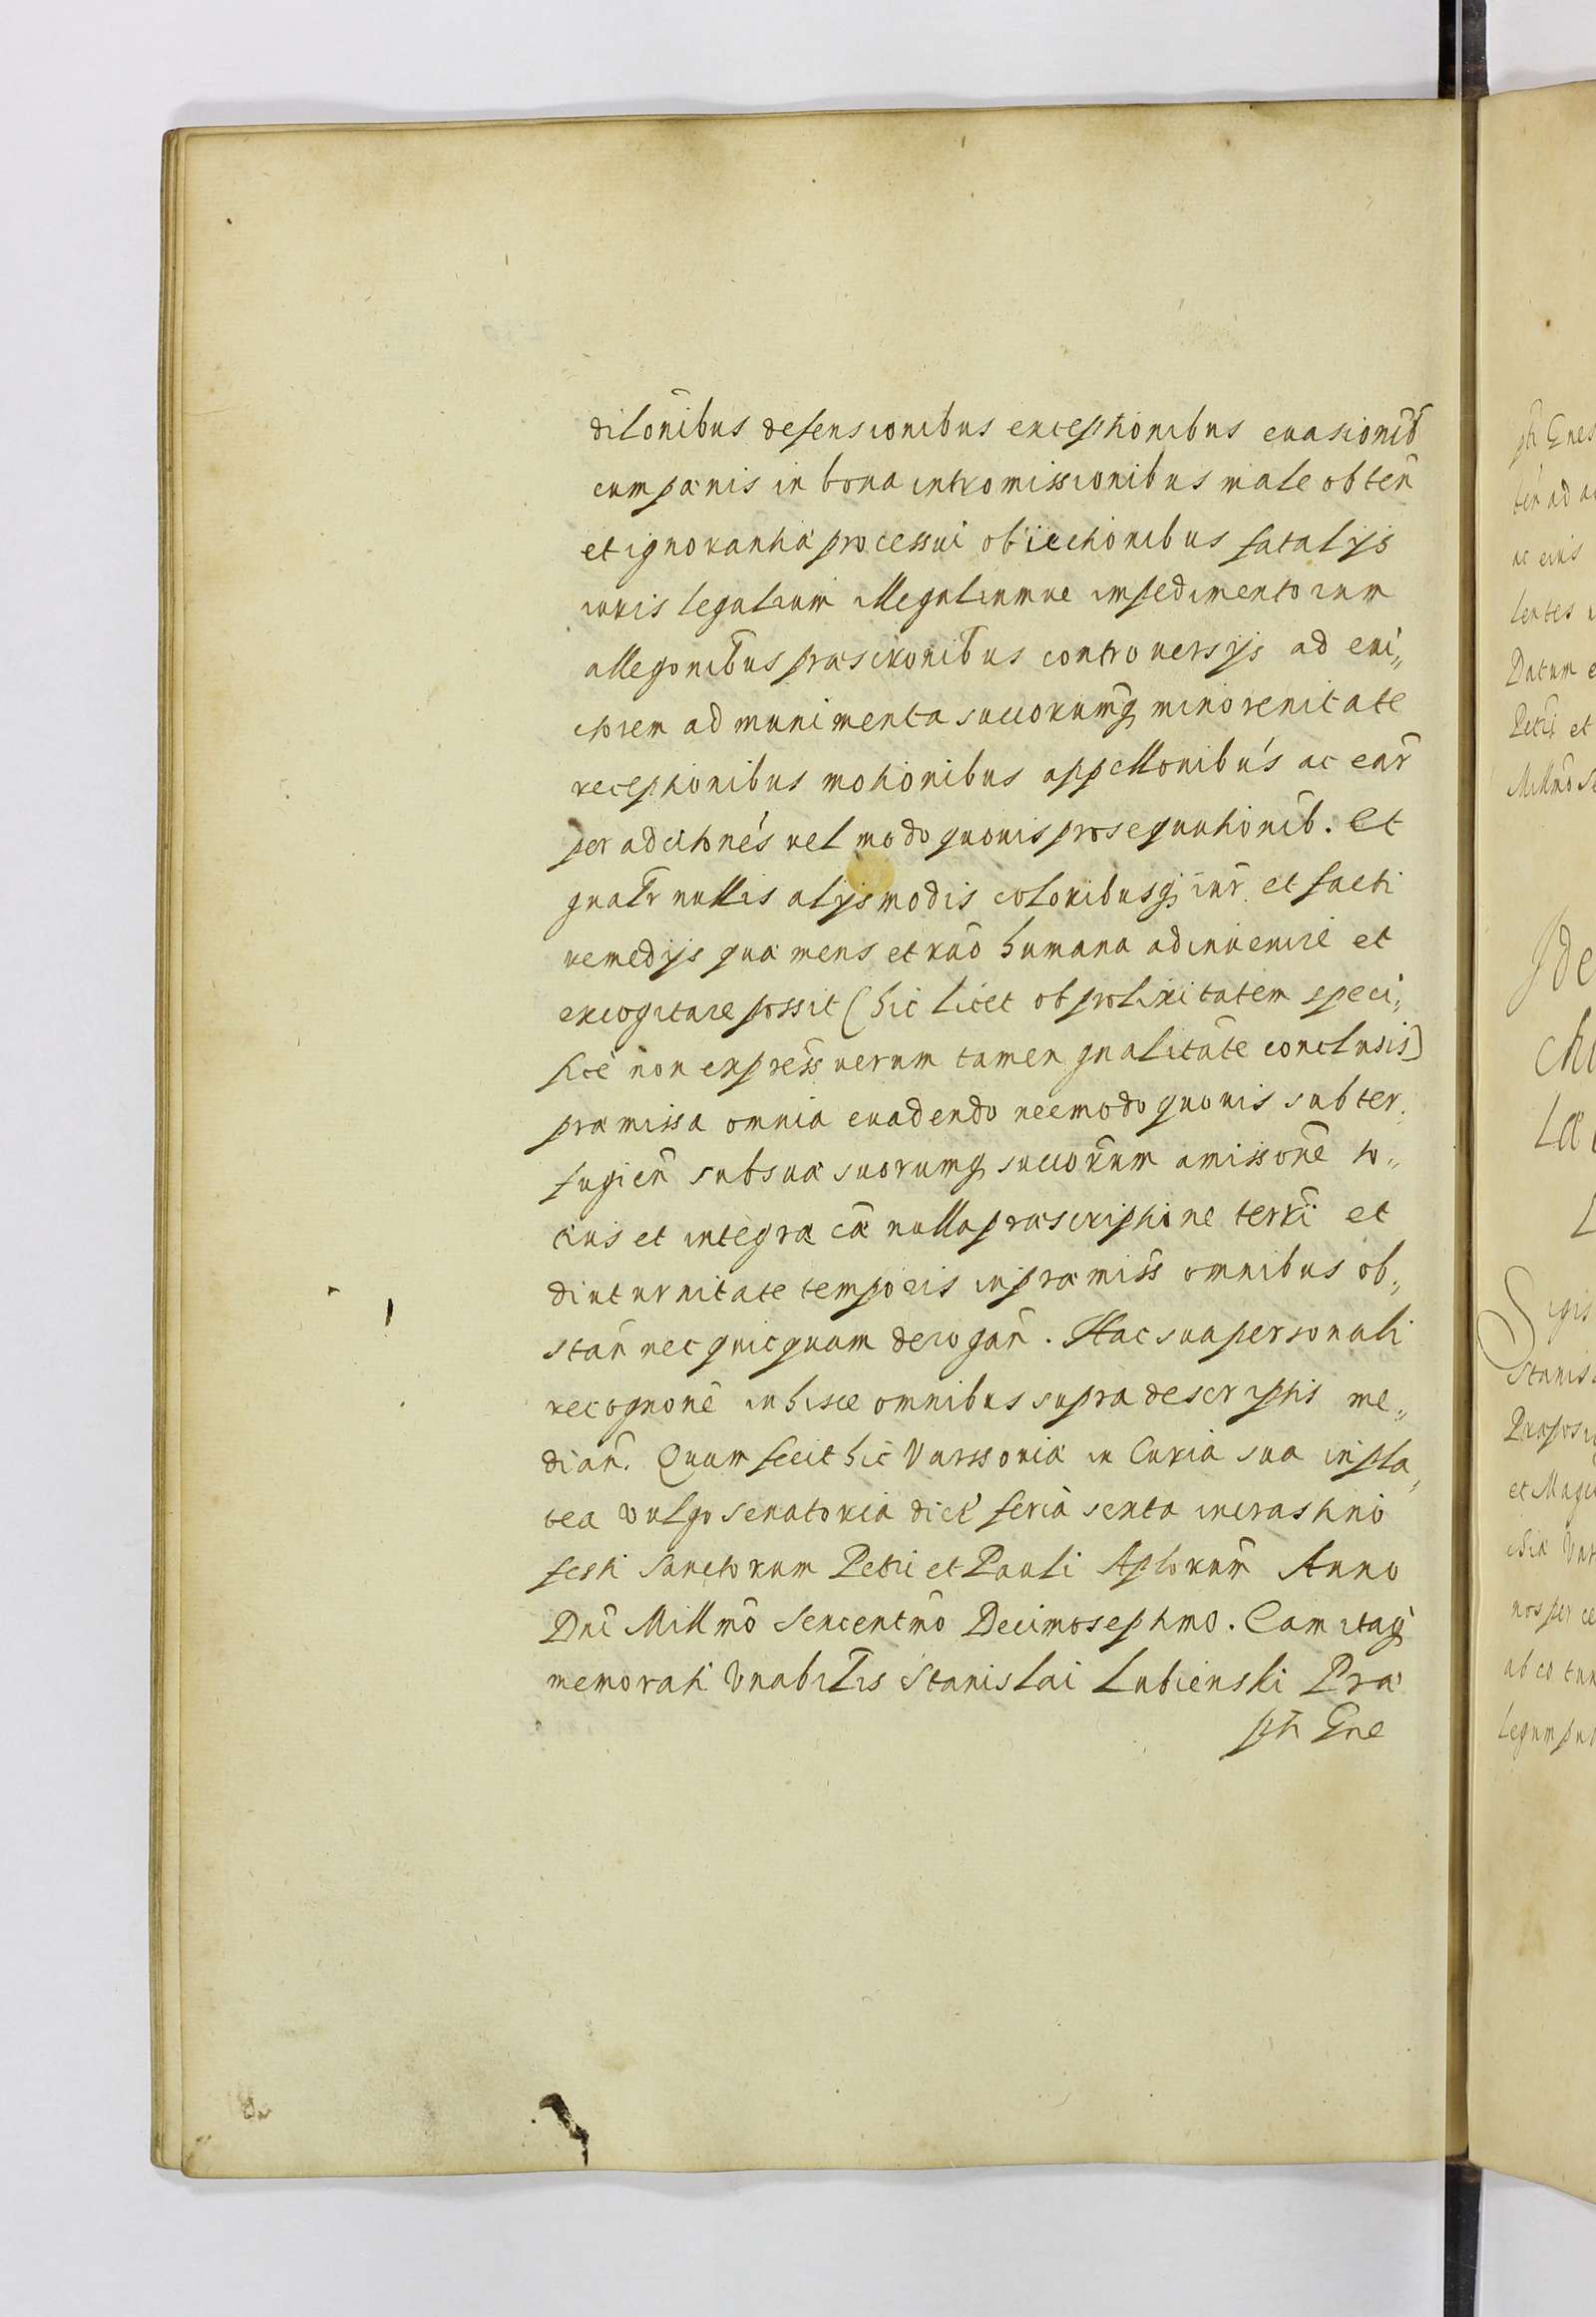 dilōnibus defensionibus exceptionibus euasionib
cum pænis in bona intromissionibus male obteñ
et ignorantiæ processui obiectionibus fatalijs
iuris legalium illegaliumue impedimentorum
allegōnibus præscrōnibus controuersijs ad eui„
ctorem ad munimenta succorumq, minorenitate
receptionibus motionibus appellōnibus ac eār
per adcitōnes vel modo quouis prosequutionib. et
gnalr nullis alijs modis coloribusq, iur̄ et facti
remedijs quæ mens et rāō humana adinuenire et
excogitare possit (hic licet ob prolixitatem speci„
fice non express verum tamen gnalitāte conclusis)
præmissa omnia euadendo neemodo quouis subter„
fugieñ sub suæ suorumq, succorum amissōne to„
tius et integræ cæ nulla præscriptione terr̄i et
diuturnitate temporis in præmiss omnibus ob„
stañ nec quicquam derogañ. Hac sua personali
recognōne in hisce omnibus supra descriptis me„
diañ. Quam fecit hic Varssouiæ in Curia sua in pla„
tea vulgo senatoria dict feria sexta in crastino
festi Sanctorum Petri et Pauli Aplorum Anno
Dni Millmō Sexcentmō Decimoseptimo. Cum itaq
memorati Vnabilis Stanislai Lubienski Præ
pti Gne
ph Gnes
teñ ad
ac eius
lentes
Datum
Petri et
Millmō
Ide
La
Sigis
Stanis
Præpos
et Magi
nos per
ab eo
legum